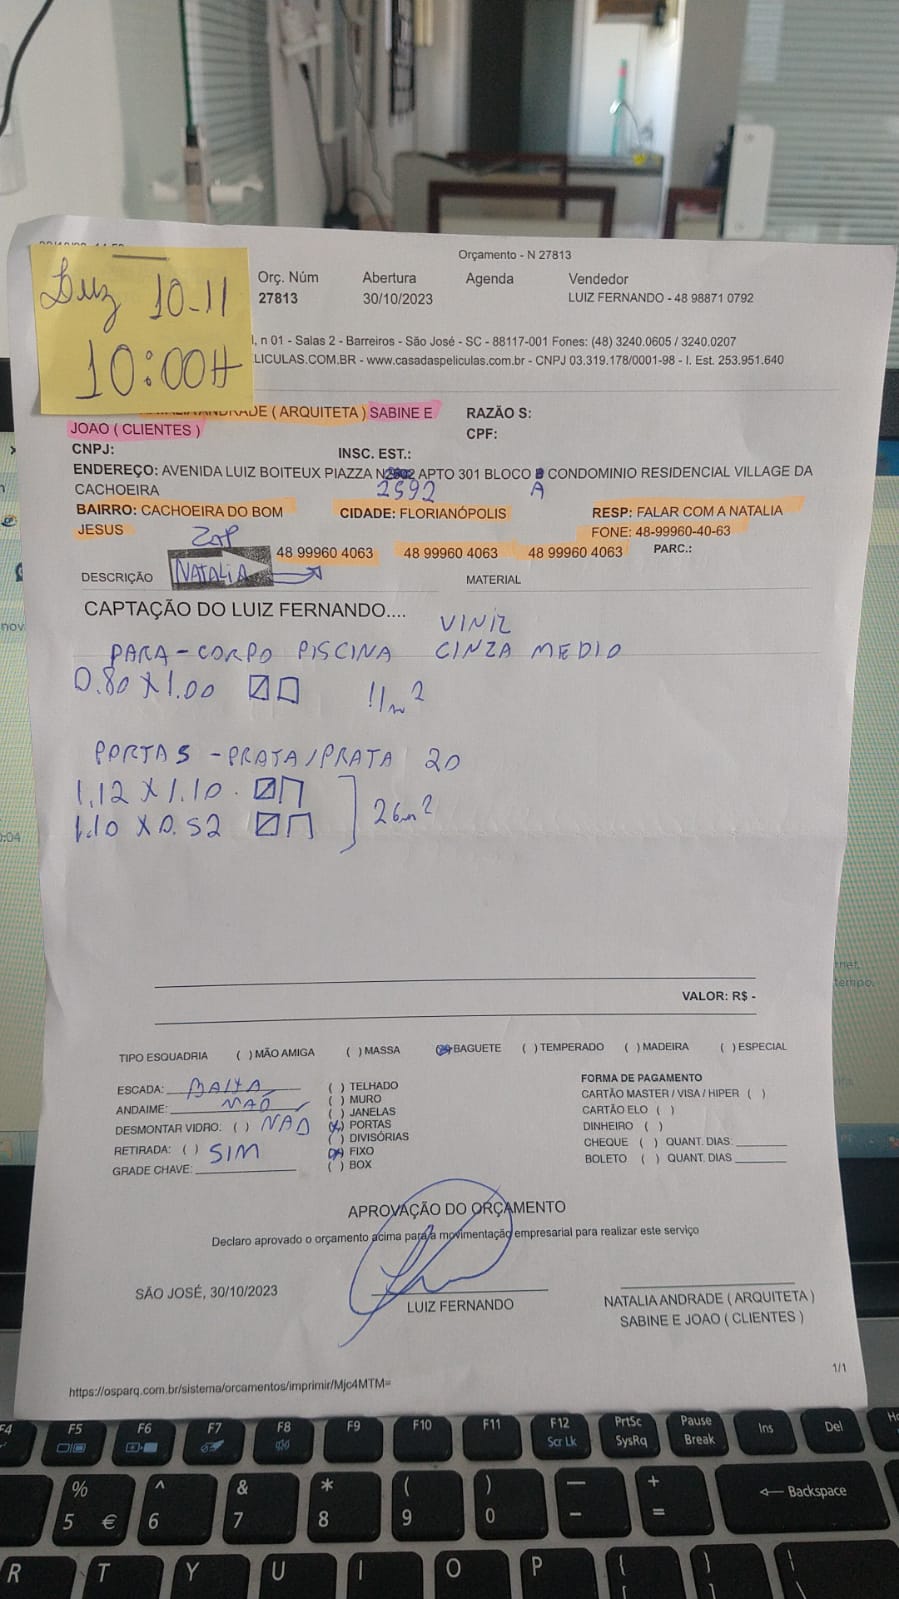 Orçamento - N 27813
Luiz 10-11
10:00H
Orç. Núm Abertura Agenda Vendedor
27813 30/10/2023 LUIZ FERNANDO - 48 98871 0792
, n 01 - Salas 2 - Barreiros - São José - SC - 88117-001 Fones: (48) 3240.0605 / 3240.0207
LICULAS.COM.BR - www.casadaspeliculas.com.br - CNPJ 03.319.178/0001-98 - I. Est. 253.951.640
ANDRADE ( ARQUITETA ) SABINE E RAZÃO S:
JOAO ( CLIENTES ) CPF:
CNPJ: INSC. EST.:
ENDEREÇO: AVENIDA LUIZ BOITEUX PIAZZA N APTO 301 BLOCO CONDOMINIO RESIDENCIAL VILLAGE DA
CACHOEIRA 2592 A
BAIRRO: CACHOEIRA DO BOM CIDADE: FLORIANÓPOLIS RESP: FALAR COM A NATALIA
JESUS FONE: 48-99960-40-63
ZAP 48 99960 4063 48 99960 4063 48 99960 4063 PARC.:
DESCRIÇÃO NATALIA MATERIAL
CAPTAÇÃO DO LUIZ FERNANDO....
VINIL
PARA-CORPO PISCINA CINZA MEDIO
0.80 X 1.00 11m²
PORTAS - PRATA/PRATA 20
1.12 X 1.10
1.10 X 0.52 26m²
VALOR: R$ -
TIPO ESQUADRIA ( ) MÃO AMIGA ( ) MASSA (X) BAGUETE ( ) TEMPERADO ( ) MADEIRA ( ) ESPECIAL
ESCADA: BAIXA ( ) TELHADO FORMA DE PAGAMENTO
( ) MURO CARTÃO MASTER / VISA / HIPER ( )
ANDAIME: NAO ( ) JANELAS CARTÃO ELO ( )
DESMONTAR VIDRO: ( ) NAO (X) PORTAS DINHEIRO ( )
( ) DIVISÓRIAS CHEQUE ( ) QUANT. DIAS:
RETIRADA: ( ) SIM (X) FIXO BOLETO ( ) QUANT. DIAS
GRADE CHAVE: ( ) BOX
APROVAÇÃO DO ORÇAMENTO
Declaro aprovado o orçamento acima para a movimentação empresarial para realizar este serviço
SÃO JOSÉ, 30/10/2023
LUIZ FERNANDO NATALIA ANDRADE ( ARQUITETA )
SABINE E JOAO ( CLIENTES )
1/1
https://osparq.com.br/sistema/orcamentos/imprimir/Mjc4MTM=
F4 F5 F6 F7 F8 F9 F10 F11 F12 PrtSc Pause Ins Del
Scr Lk SysRq Break
% ^ & * ( ) — +
5 € 6 7 8 9 0 - = Backspace
R T Y U I O P { }